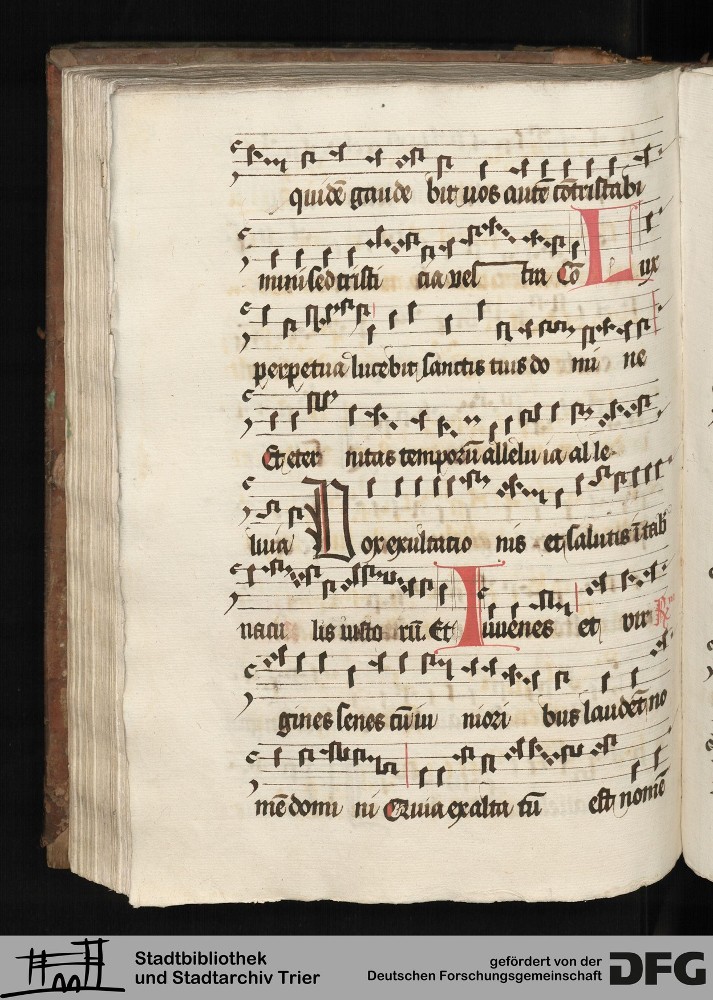 quidē gaude bit uos autē cōtristabi
mini sed tristi cia vel tin Cō Lux
perpetua lucebit sanctis tuis do mi ne
Et eter nitas temporū allelu ia al le
luia Vox exultatio nis et salutis ī tab
nacu lis iusto rū. Et Iuuenes et vir
gines senes cū iu niori bus laudēt no
mē domi ni Quia exalta tū est nomē
Stadtbibliothek
und Stadtarchiv Trier
gefördert von der
Deutschen Forschungsgemeinschaft
DFG